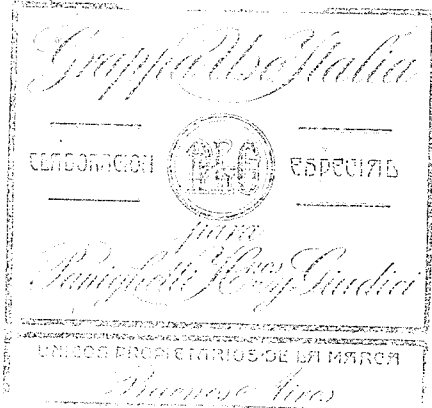 Grappa Uso Italia
ELABORACION ESPECIAL
para
Panighetti Hnos y Giudici
UNICOS PROPIETARIOS DE LA MARCA
Buenos Aires